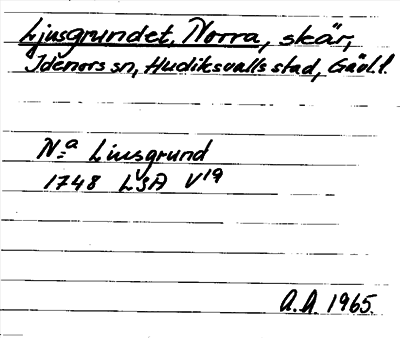 Ljusgrundet, Norra, skär,
Idenors sn, Hudiksvalls stad, Gävl.l.
N:a Liusgrund
1748 LSA V19
A.A. 1965.